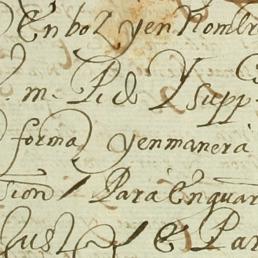 En boz y en Nombr
m. Pido Y supp
forma y en manera
sion / Para En guar
Just / e Par